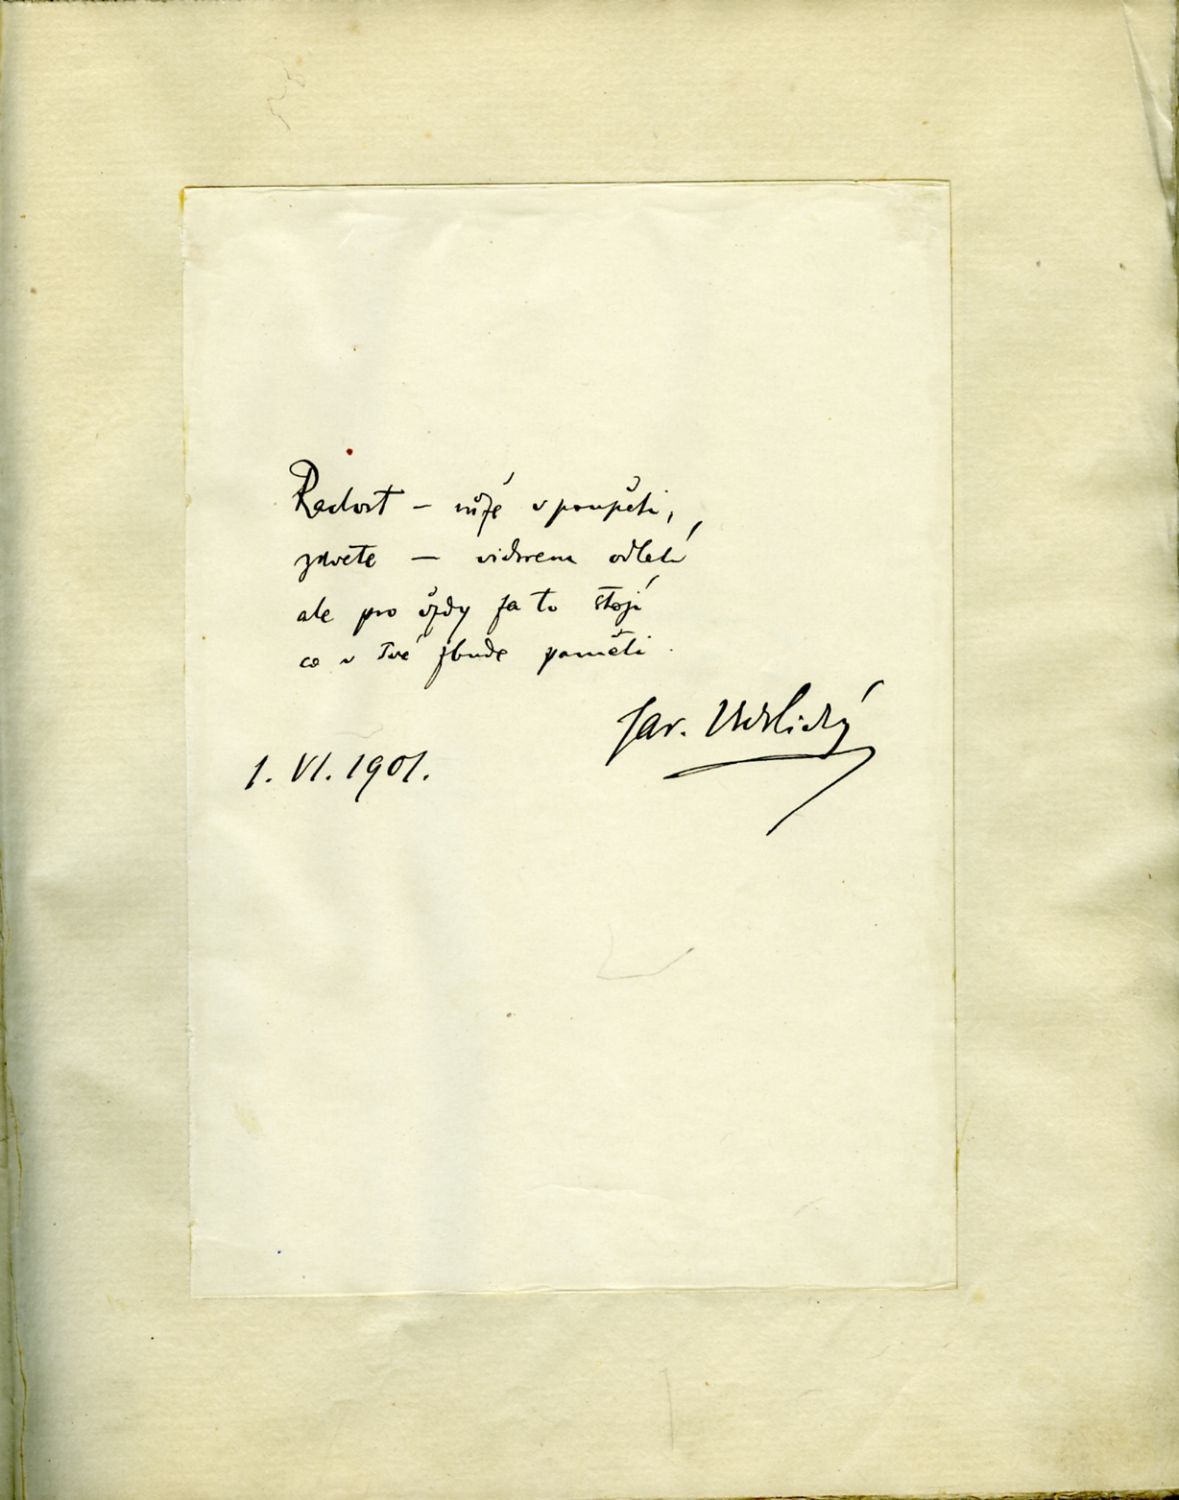 Radost — růže v poupěti,
zkvete — vichrem odletí
ale pro vždy za to stojí
co v Tvé zbude paměti.
Jar. Vrchlický
1. VI. 1901.